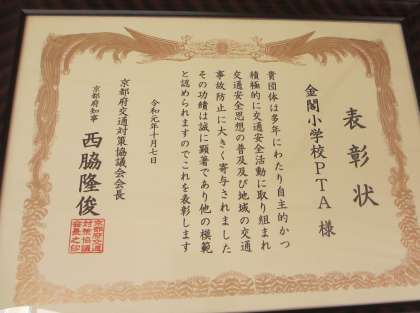 表彰状
金閣小学校PTA 様
貴団体は多年にわたり自主的かつ
積極的に交通安全活動に取り組まれ
交通安全思想の普及及び地域の交通
事故防止に大きく寄与されました
その功績は誠に顕著であり他の模範
と認められますのでこれを表彰します
令和元年十月七日
京都府交通対策協議会会長
京都府知事 西脇隆俊
京都府交通
対策協議
会長之印